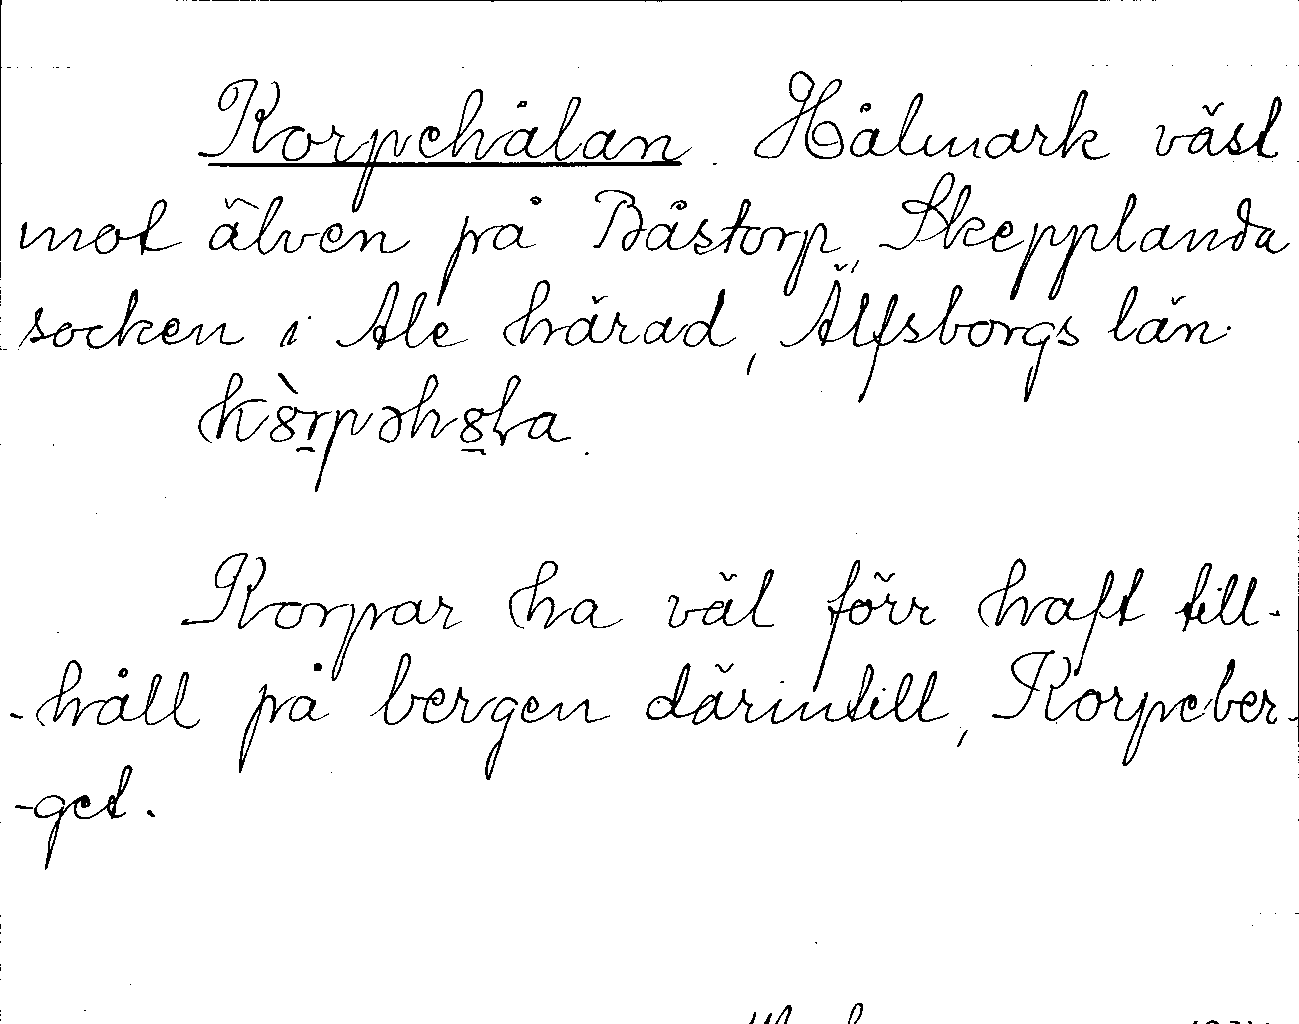 Korpehålan. Hålmark väst
mot älven på Båstorp, Skepplanda
socken i Ale härad, Älfsborgs län.
Korpar ha väl förr haft till-
-håll på bergen därintill, Korpeber-
-get.